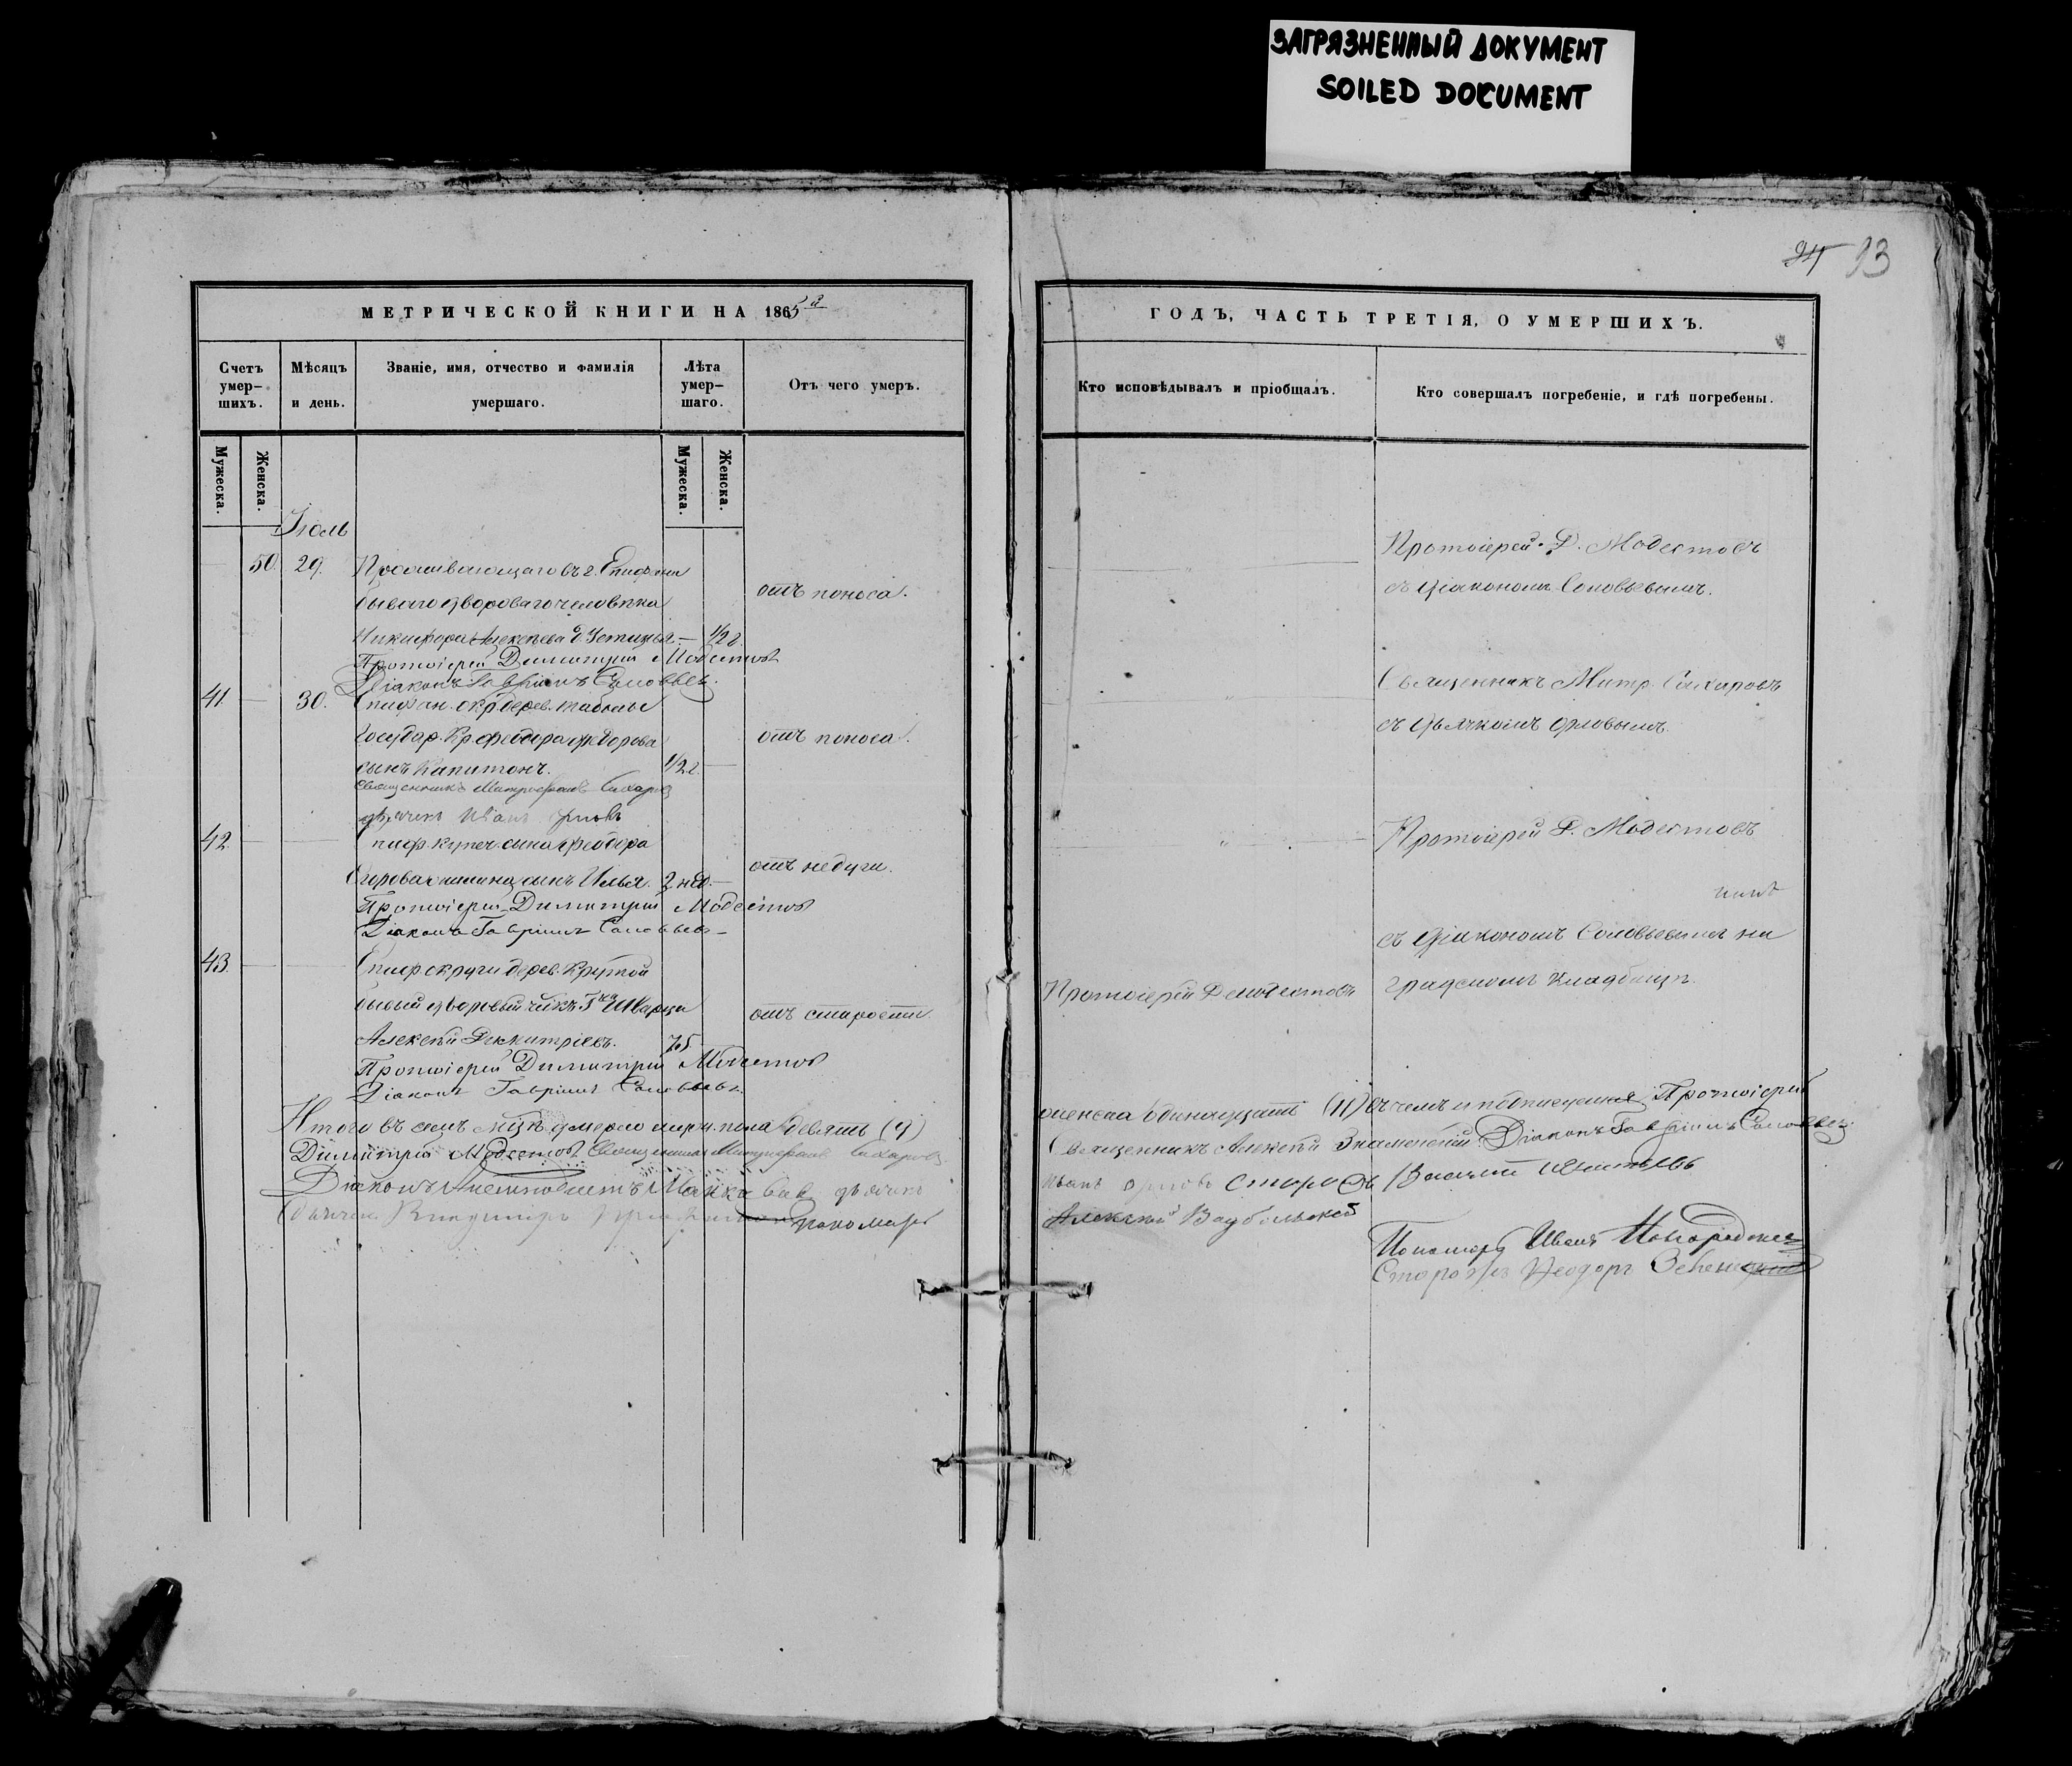 ЗАГРЯЗНЕННЫЙ ДОКУМЕНТ
SOILED DOCUMENT
93
МЕТРИЧЕСКОЙ КНИГИ НА 1865й
Счетъ умер-шихъ.
Мѣсяцъ и день.
Званіе, имя, отчество и фамилія умершаго.
Лѣта умер-шаго.
Отъ чего умеръ.
Мужеска.
Женска.
Мужеска.
Женска.
Іюль
50. 29. Проживающаго въ г. Епифани
бывшаго двороваго человѣка
отъ поноса.
Никифора Алексѣева д. Устинья — 1/2 г.
Протоіерей Димитрій Модестовъ
Діаконъ Гавріилъ Соловьевъ.
41 — 30. Епифан. окр. дерев.
Государ. Кр. Федора Федорова
отъ поноса.
сынъ Капитонъ. 1/2 г. —
Священникъ Митрофанъ Сахаровъ
дьячекъ Иванъ Орловъ
42. Епиф. купеч. сына Феодора
отъ недуги.
сынъ Илья. 2 нед. —
Протоіерей Димитрій Модестовъ
Діаконъ Гавріилъ Соловьевъ
43. Епиф. округи дерев. Крутой
бывый дворовый чікъ Гна Шварца
отъ старости.
Алексѣй Димитріевъ. 75
Протоіерей Димитрій Модестовъ
Діаконъ Гавріилъ Соловьевъ.
Итого въ семъ мцѣ умерло муж. пола девять (9)
Димитрій Модестовъ Священникъ Митрофанъ Сахаровъ
Діаконъ дьячекъ
Владиміръ пономарь
ГОДЪ, ЧАСТЬ ТРЕТІЯ, О УМЕРШИХЪ.
Кто исповѣдывалъ и пріобщалъ.
Кто совершалъ погребеніе, и гдѣ погребены.
Протоіерей Д. Модестовъ
съ Діакономъ Соловьевымъ.
Священникъ Митр. Сахаровъ
съ Дьячкомъ Орловымъ.
Протоіерей Д. Модестовъ
съ Діакономъ Соловьевымъ на
Протоіерей Д. Модестовъ
градскомъ кладбищѣ.
женска одинадцать (11) въ чемъ и подписуемся Протоіерей
Священникъ Алексѣй Знаменскій Діаконъ Гавріилъ Соловьевъ
Иванъ Орловъ Василій
Алексѣй
Пономарь Иванъ
Феодоръ